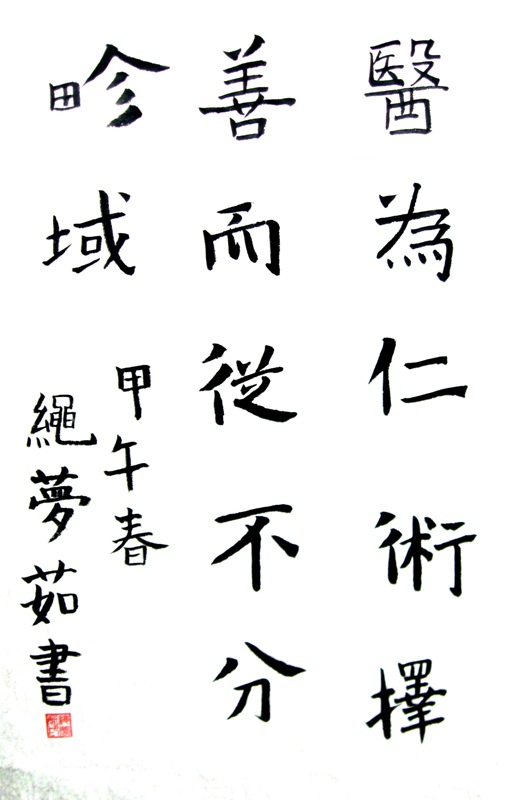 醫為仁術擇
善而從不分
畛域
甲午春
繩夢茹書